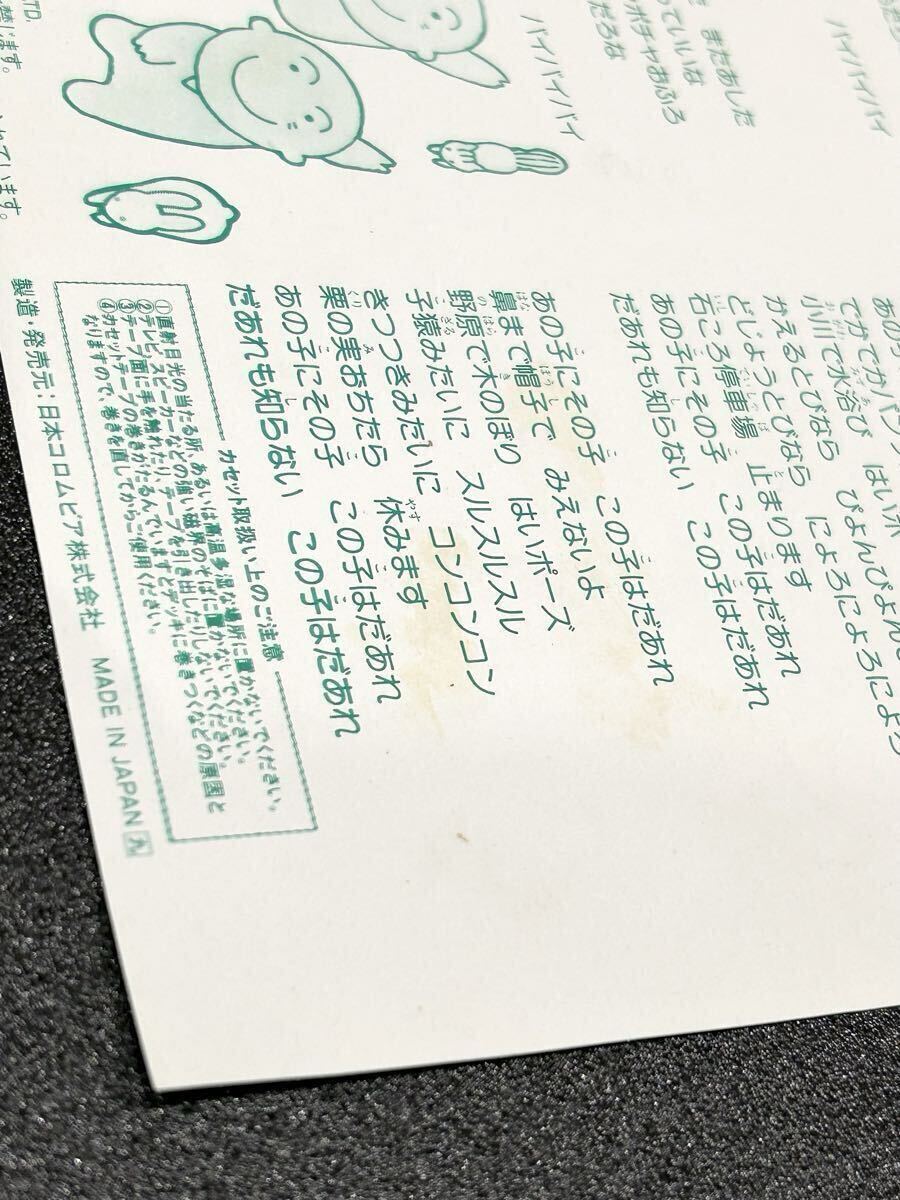 ふた
バイバイバイ
またあした
っていいな
ポチャおふろ
だろな
バイバイバイ
あの
でかでかパンツ
小川で水浴び はいポ
かえるとびなら ぴょんぴょん
どじょうとびなら にょろにょろによろ
石ころ停車場 止まります
あの子にその子 この子はだあれ
だあれも知らない この子はだあれ
あの子にその子 この子はだあれ
鼻まで帽子で みえないよ
野原で木のぼり はいポーズ
子猿みたいに スルスルスル
きつつきみたいに コンコンコン
栗の実おちたら 休みます
あの子にその子 この子はだあれ
だあれも知らない この子はだあれ
カセット取扱い上のご注意
①直射日光の当たる所、あるいは高温多湿な場所に置かないでください。
②テレビ、スピーカーなどの強い磁界のそばに置かないでください。
③テープ面に手を触れたり、テープを引き出したりしないでください。
④カセットテープの巻きがたるんでいますとデッキに巻きつくなどの原因と
なりますので、巻きを直してからご使用ください。
製造・発売元:日本コロムビア株式会社 MADE IN JAPAN
TD.
禁じます。
れています。